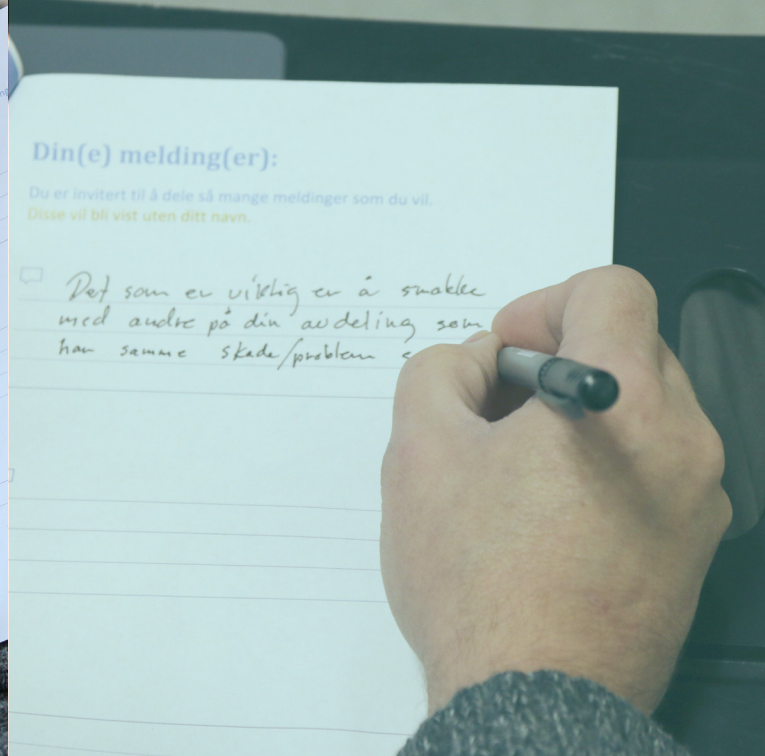 Din(e) melding(er):
Du er invitert til å dele så mange meldinger som du vil.
Disse vil bli vist uten ditt navn.
Det som er viktig er å snakke
med andre på din avdeling som
har samme skade/problem